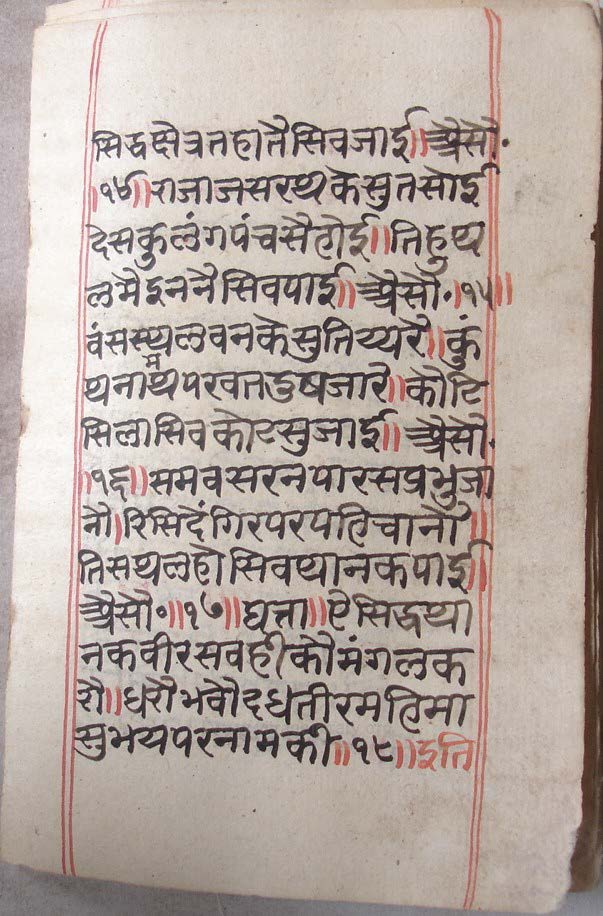 सिद्धक्षेत्रतहातैसिवजाई॥ अैसौ॰
॥१४॥ राजाजसरथकेसुतसोई
देसकुलंगपंचसैहोई॥ तिहुथ
लमैइननैसिवपाई॥ अैसौ॰॥१५॥
वंसस्थलवनकेसुतिय्यरै॥ कुं
थनामथपरवतडुषजारै॥ कोटि
सिलासिवकोटसुजाई॥ अैसौ॰
॥१६॥ समवसरनपारसप्रभुजा
नौ। रिसिदेंगिरपरपहिचानौ॥
तिसथलहोसिवथानकपाई॥
अैसौ॰॥१७॥ घत्ता॥ ऐसिद्धथा
नकवीरसवहीकौमंगलक
रौ॥ धरौभवौदधतीरमहिमा
सुभयपरनामकी॥१८॥ इति